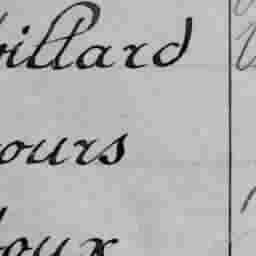 billard
ours
oux